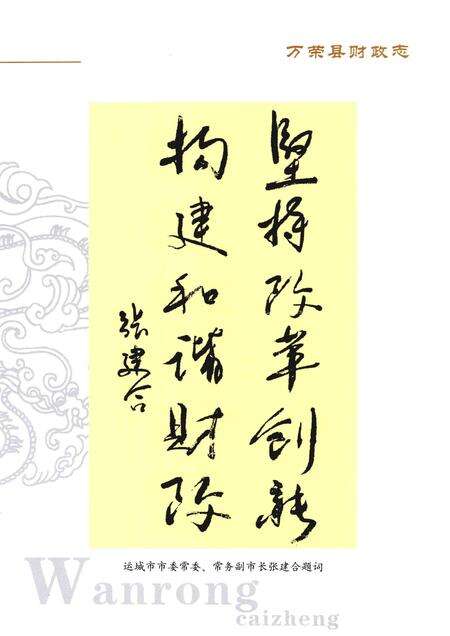 万荣县财政志
坚持改革创新
构建和谐财政
张建合
运城市市委常委、常务副市长张建合题词
Wanrong
caizheng